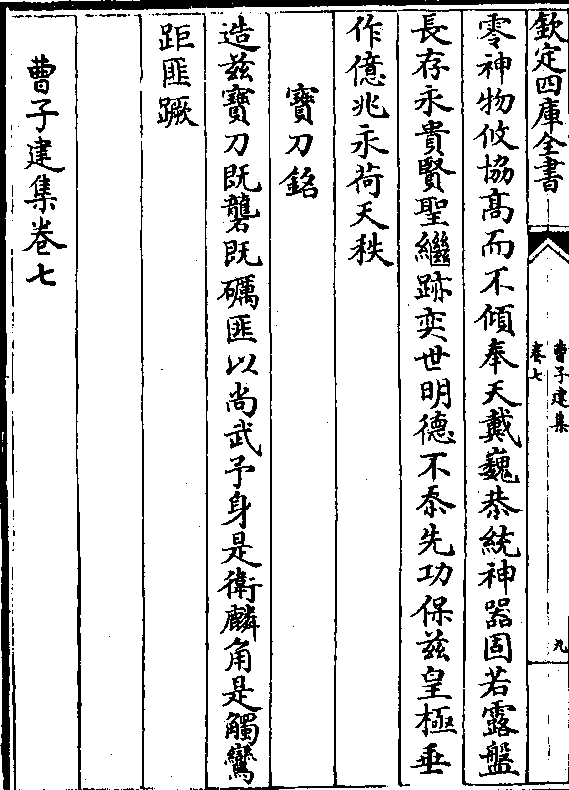 欽定四庫全書
曹子建集
卷七
九
零神物攸協高而不傾奉天戴巍恭統神器固若露盤
長存永貴賢聖繼跡奕世明德不忝先功保兹皇極垂
作億兆永荷天秩
寶刀銘
造兹寶刀既礱既礪匪以尚武予身是衛麟角是觸鸞
距匪蹶
曹子建集卷七